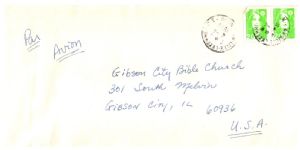 Par
Avion
Gibson City Bible Church
301 South Melvin
Gibson City, IL 60936
U.S.A.